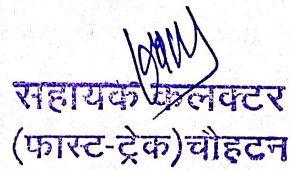 सहायक कलक्टर
(फास्ट-ट्रेक)चौहटन